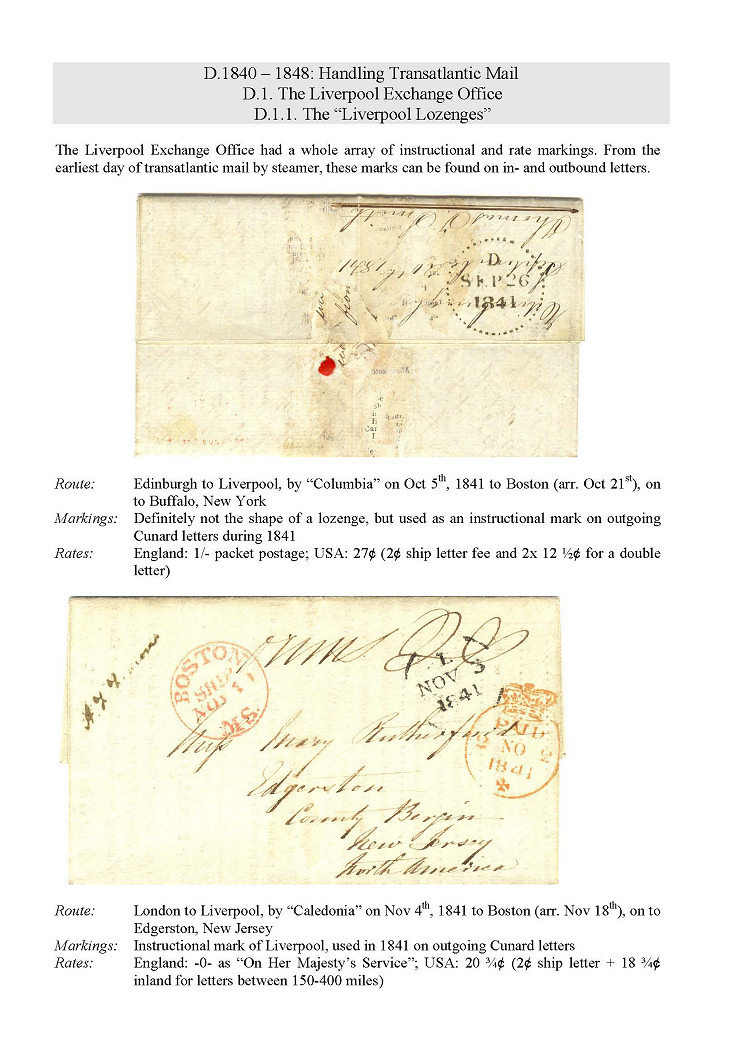 D.1840 – 1848: Handling Transatlantic Mail
D.1. The Liverpool Exchange Office
D.1.1. The “Liverpool Lozenges”
The Liverpool Exchange Office had a whole array of instructional and rate markings. From the
earliest day of transatlantic mail by steamer, these marks can be found on in- and outbound letters.
D
SEP 26
1841
Route: Edinburgh to Liverpool, by “Columbia” on Oct 5th, 1841 to Boston (arr. Oct 21st), on
to Buffalo, New York
Markings: Definitely not the shape of a lozenge, but used as an instructional mark on outgoing
Cunard letters during 1841
Rates: England: 1/- packet postage; USA: 27¢ (2¢ ship letter fee and 2x 12 ½¢ for a double
letter)
BOSTON
SHIP
MS.
L
NOV 3
1841
PAID
NO
1841
Miss Mary Rutherfurd
Edgerston
County Bergin
New Jersey
North America
Route: London to Liverpool, by “Caledonia” on Nov 4th, 1841 to Boston (arr. Nov 18th), on to
Edgerston, New Jersey
Markings: Instructional mark of Liverpool, used in 1841 on outgoing Cunard letters
Rates: England: -0- as “On Her Majesty’s Service”; USA: 20 ¾¢ (2¢ ship letter + 18 ¾¢
inland for letters between 150-400 miles)